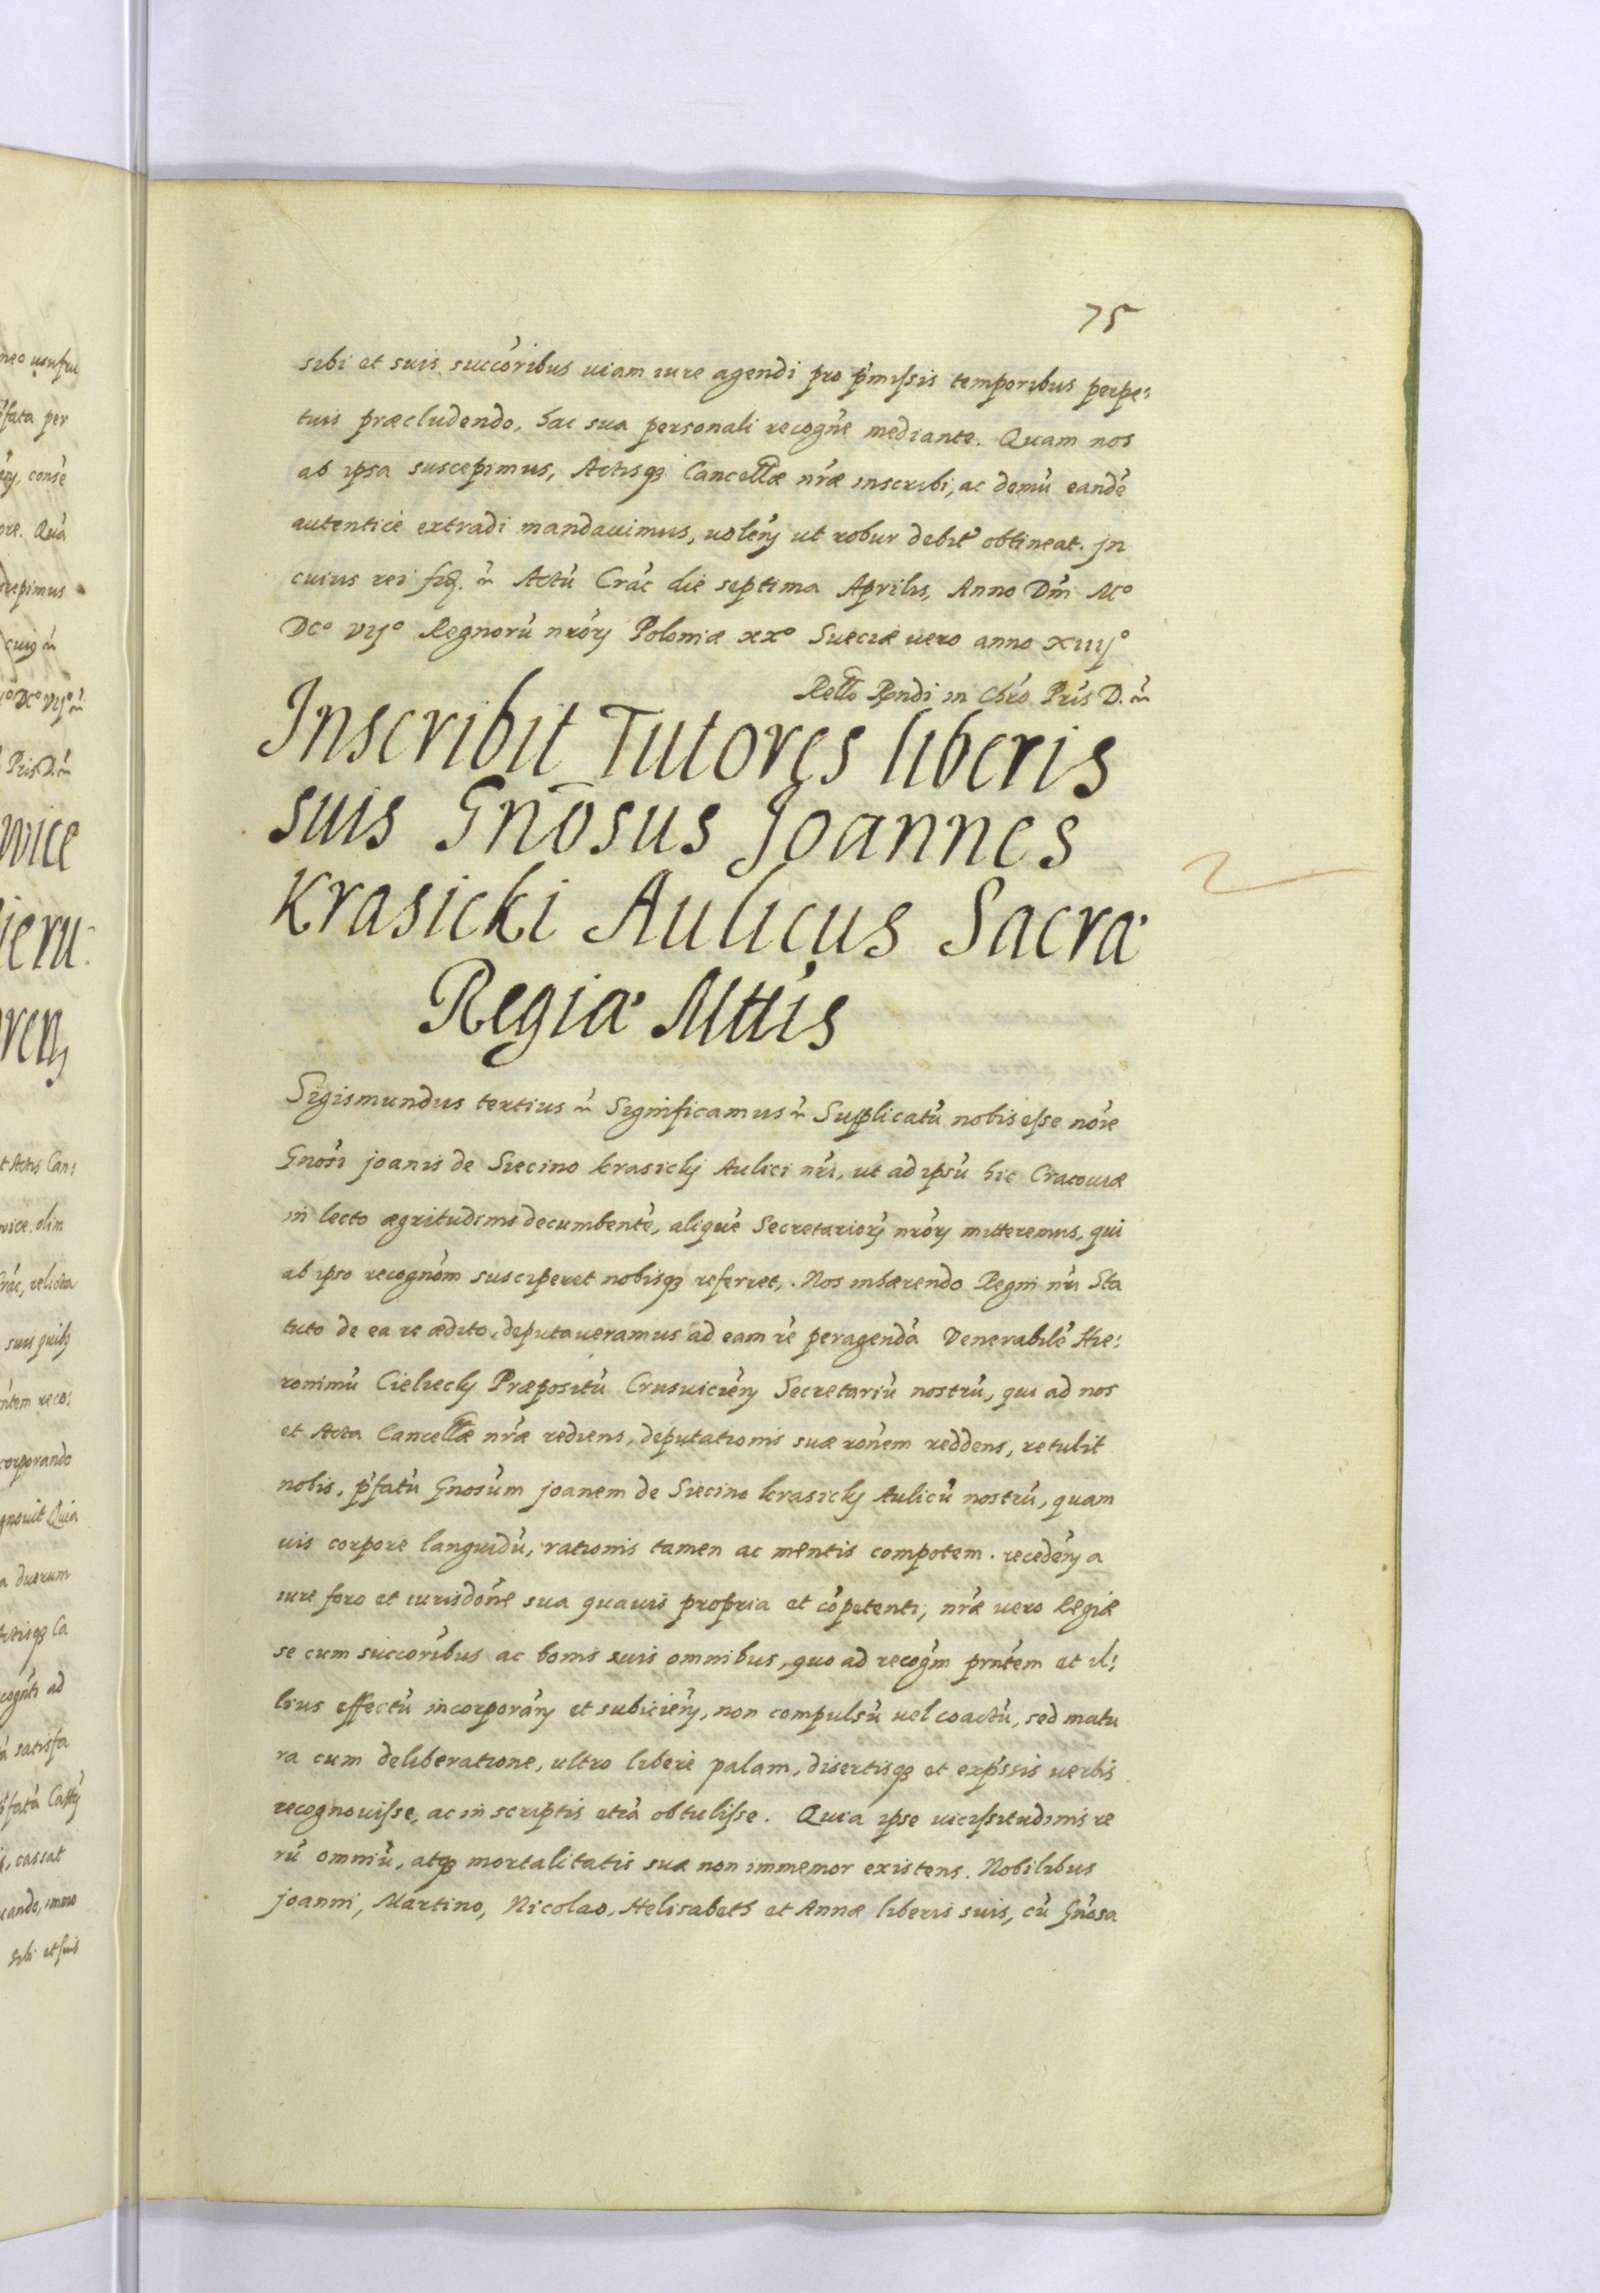 75
sibi et suis succoribus uiam iure agendi pro p'missis temporibus perpe:
tuis præcludendo, hac sua personali recogne mediante. Quam nos
ab ipsa suscepimus, Actisq; Cancellæ nræ inscribi, ac demū eandē
autenticè extradi mandauimus, uoleñ ut robur debitū obtineat. jn
cuius rei fid. Actū Crac die septima Aprilis, Anno Dni Mo
DCo VIJo Regnorū nrorȝ Poloniæ xxo Sueciæ uero anno XIIIJo
Rello Rndi in Chro Pris D.
Inscribit Tutores liberis
suis Gnōsus Joannes
Krasicki Aulicus Sacræ
Regiæ Mttis
Sigismundus tertius Significamus Supplicatū nobis esse noīe
Gnosi joanis de Siecino krasickj Aulici nri, ut ad ipsū hic Cracouiæ
in lecto ægritudinis decumbentē, aliquē Secretariorȝ nrorȝ mitteremus, qui
ab ipso recognōm susciperet nobisq; referret,. Nos inhærendo Regni nri Sta
tuto de ea re ædito, deputaueramus ad eam rē peragendā Venerabilē Hie:
ronimū Cieliecky Præpositū Crusuicieñ Secretariū nostrū, qui ad nos
et Acta Cancellæ nræ rediens, deputationis suæ ronem reddens, retulit
nobis, p'fatū Gnosum joanem de Siecino krasickj Aulicū nostrū, quam
uis corpore languidū, rationis tamen ac mentis compotem. recedeñ a
iure foro et iurisdone sua quauis propria et cōpetenti, nræ uero Regiæ
se cum succoribus ac bonis suis omnibus, quo ad recogm prntem et il:
lius effectū incorporañ et subicieñ, non compulsū uel coactū, sed matu
ra cum deliberatione, ultro liberè palam, disertisq; et exp'ssis uerbis
recognouisse, ac in scriptis etiā obtulisse. Quia ipse uicissitudinis re
rū omniū, atq; mortalitatis suæ non immemor existens. Nobilibus
joanni, Martino, Nicolao, Helisabeth et Annæ liberis suis, cū Gnosa